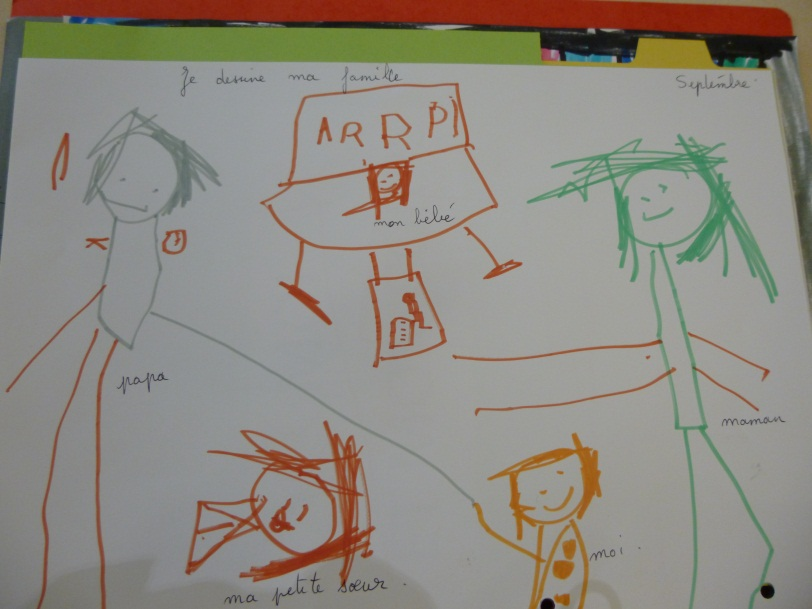 Je dessine ma famille
Septembre.
ARRPI
mon bébé
papa
maman
moi.
ma petite sœur.